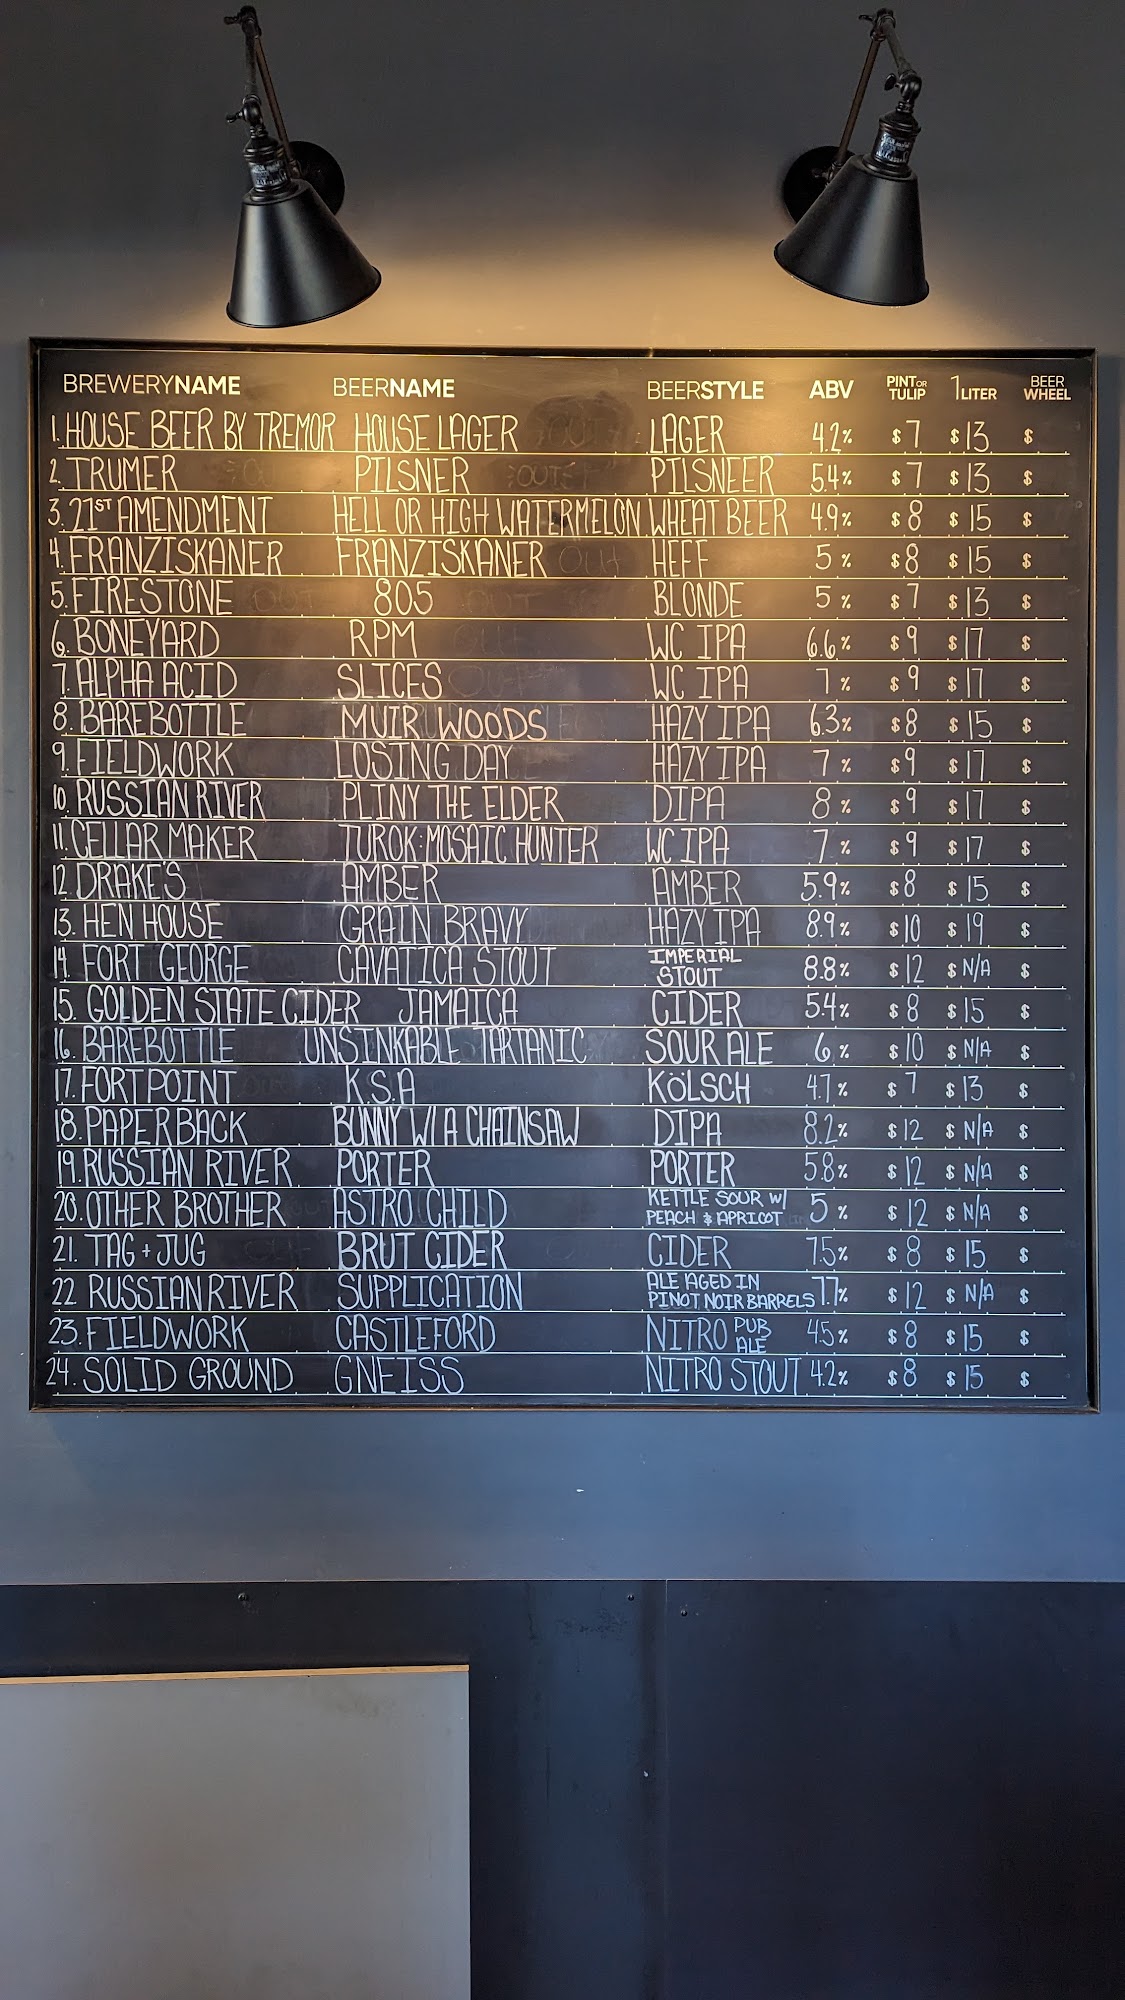 BREWERYNAME BEERNAME BEERSTYLE ABV PINT OR TULIP 1 LITER BEER WHEEL
1. HOUSE BEER BY TREMOR HOUSE LAGER LAGER 4.2% $7 $13 $
2. TRUMER PILSNER PILSNEER 5.4% $7 $13 $
3. 21ST AMENDMENT HELL OR HIGH WATERMELON WHEAT BEER 4.9% $8 $15 $
4. FRANZISKANER FRANZISKANER HEFF 5% $8 $15 $
5. FIRESTONE 805 BLONDE 5% $7 $13 $
6. BONEYARD RPM WC IPA 6.6% $9 $17 $
7. ALPHA ACID SLICES WC IPA 7% $9 $17 $
8. BAREBOTTLE MUIR WOODS HAZY IPA 6.3% $8 $15 $
9. FIELDWORK LOSING DAY HAZY IPA 7% $9 $17 $
10. RUSSIAN RIVER PLINY THE ELDER DIPA 8% $9 $17 $
11. CELLAR MAKER TUROK: MOSAIC HUNTER WC IPA 7% $9 $17 $
12. DRAKE'S AMBER AMBER 5.9% $8 $15 $
13. HEN HOUSE GRAIN BRAVY HAZY IPA 8.9% $10 $19 $
14. FORT GEORGE CAVATICA STOUT IMPERIAL STOUT 8.8% $12 $N/A $
15. GOLDEN STATE CIDER JAMAICA CIDER 5.4% $8 $15 $
16. BAREBOTTLE UNSINKABLE TARTANIC SOUR ALE 6% $10 $N/A $
17. FORT POINT K.S.A KÖLSCH 4.7% $7 $13 $
18. PAPERBACK BUNNY W/ A CHAINSAW DIPA 8.2% $12 $N/A $
19. RUSSIAN RIVER PORTER PORTER 5.8% $12 $N/A $
20. OTHER BROTHER ASTRO CHILD KETTLE SOUR W/ PEACH & APRICOT 5% $12 $N/A $
21. TAG + JUG BRUT CIDER CIDER 7.5% $8 $15 $
22 RUSSIAN RIVER SUPPLICATION ALE AGED IN PINOT NOIR BARRELS 7.7% $12 $N/A $
23. FIELDWORK CASTLEFORD NITRO PUB ALE 4.5% $8 $15 $
24. SOLID GROUND GNEISS NITRO STOUT 4.2% $8 $15 $